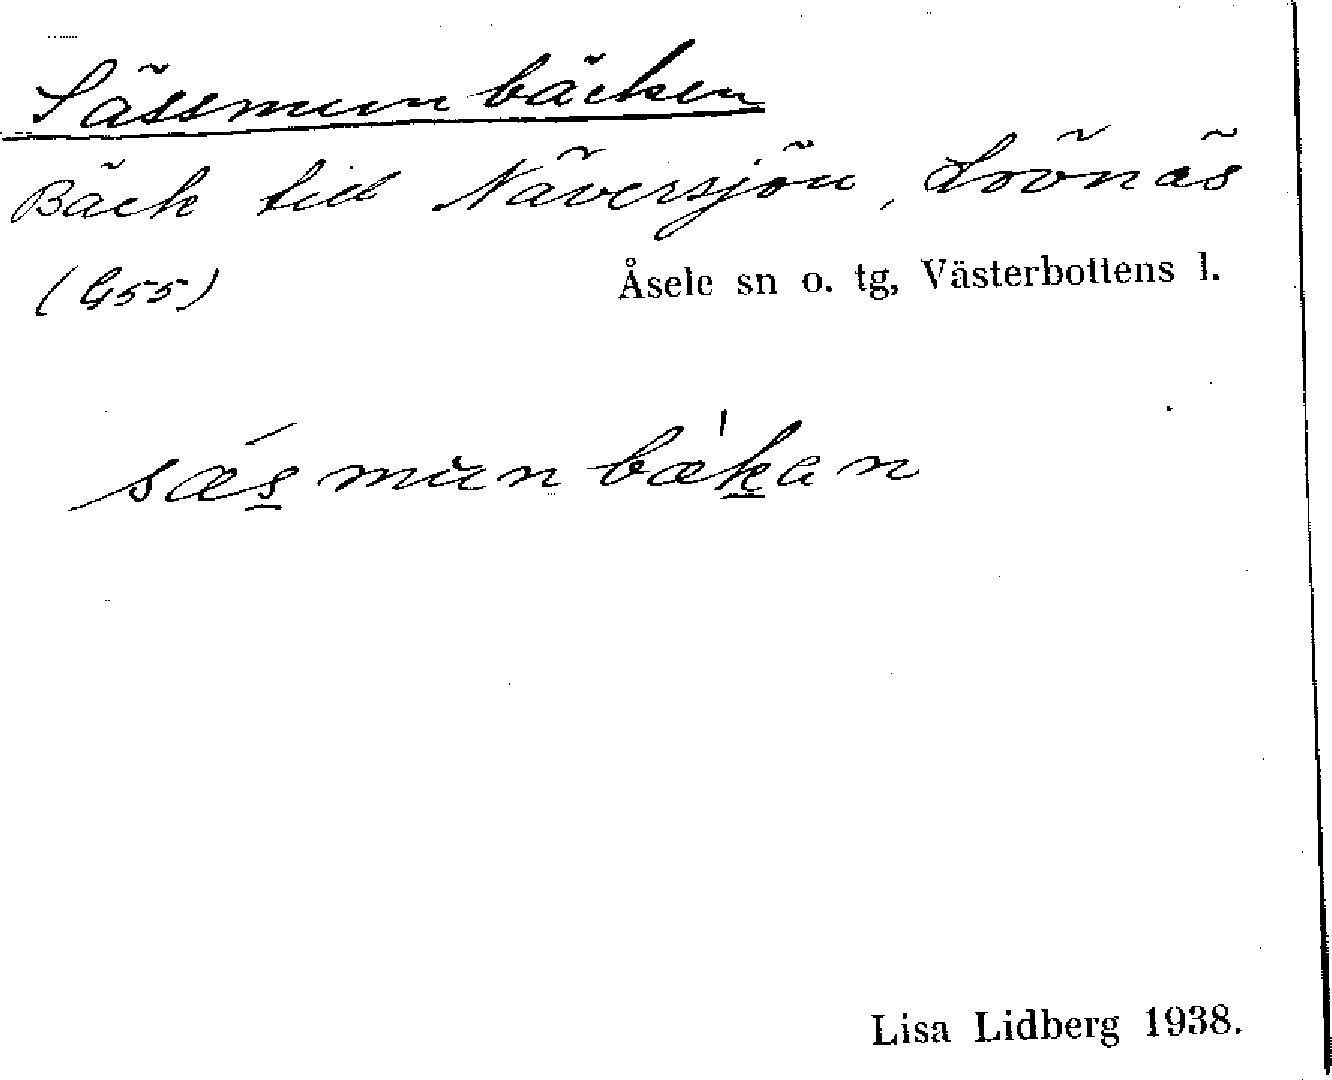 Sässmunbäcken
Bäck till Näversjön, Lövnäs
(G55)
Åsele sn o. tg, Västerbottens l.
sæ´s̲munbæ'k̲an
Lisa Lidberg 1938.